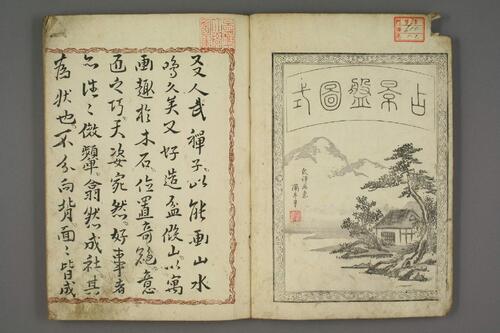 占景盤圖式
友人武禪子以能画山水
鳴久矣又好造盆假山以寓
画趣於木石位置奇絶意
匠之巧天姿宛然好事者
亦往〻倣顰翕然成社其
為状也不分向背面〻皆成